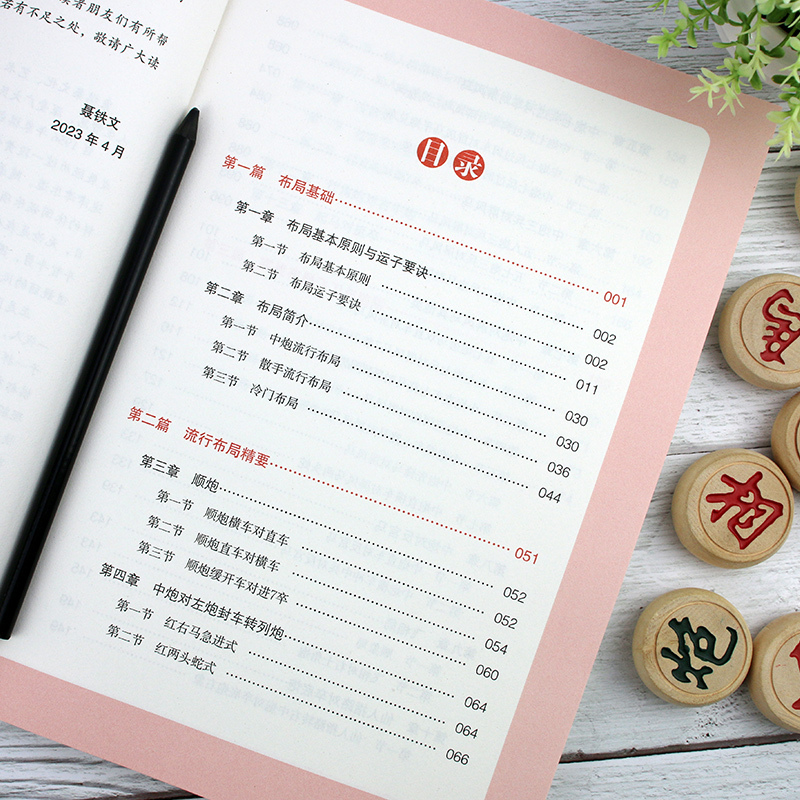 读者朋友们有所帮
若有不足之处，敬请广大读
聂铁文
2023年4月
目录
第一篇 布局基础 001
第一章 布局基本原则与运子要诀 002
第一节 布局基本原则 002
第二节 布局运子要诀 011
第二章 布局简介 030
第一节 中炮流行布局 030
第二节 散手流行布局 036
第三节 冷门布局 044
第二篇 流行布局精要 051
第三章 顺炮 052
第一节 顺炮横车对直车 052
第二节 顺炮直车对横车 054
第三节 顺炮缓开车对进7卒 060
第四章 中炮对左炮封车转列炮 064
第一节 红右马急进式 064
第二节 红两头蛇式 066
炮
炮